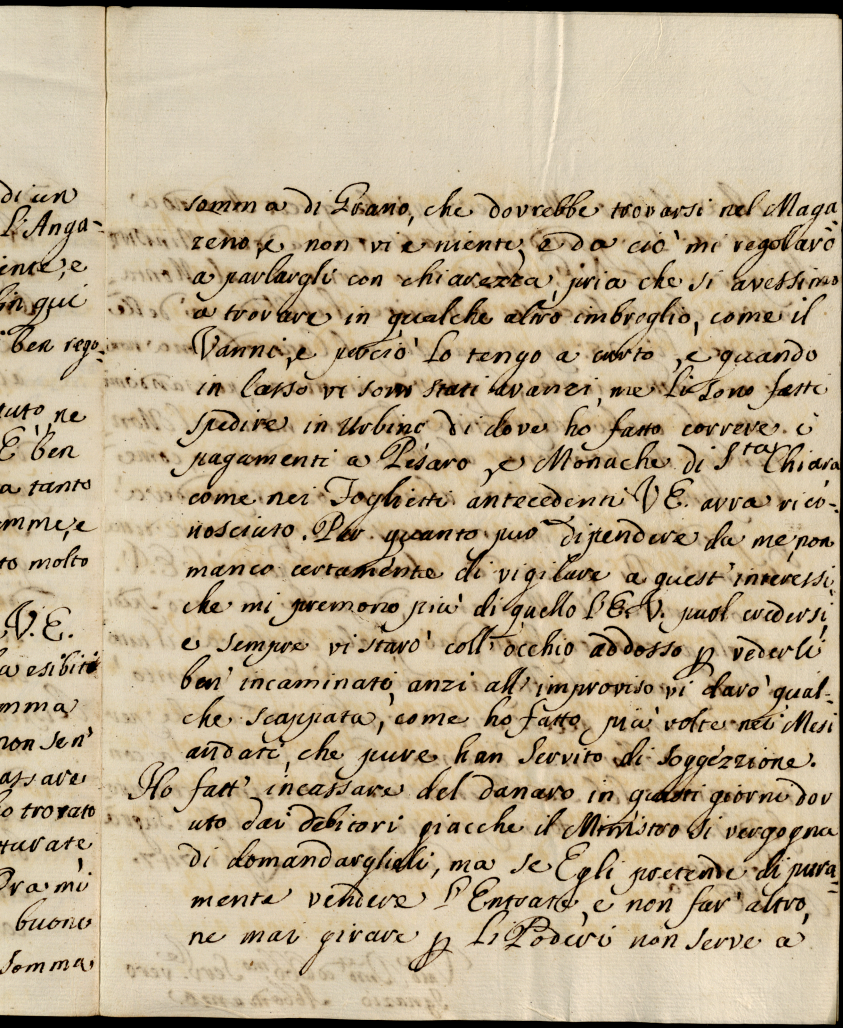 di un
L'Anga-
iente, e
bin qui
ben rego-
tuto, ne
E ben
a tanto
mme, e
to molto
V. E.
la esibito
mma
non sen'
assare
o trovato
turate
Ora mi
buono
Somma
somma di Grano, che dovrebbe trovarsi nel Maga=
zeno, e non vi è niente, e da ciò mi regolarò
a parlargli con chiarezza, pria che si avessimo
a trovare in qualche altro imbroglio, come il
Vanni, e perciò lo tengo a curto, e quando
in Casso vi sono stati avanzi, me li sono fatti
spedire in Urbino di dove ho fatto correre i
pagamenti a Pesaro, e Monache di S.ta Chiara
come nei Foglietti antecedenti V E. avra rico-
nosciuto. Per quanto può dipendere da me, non
manco certamente di vigilare a quest' interessi,
che mi premono più di quello l'E. V. puol credersi,
e sempre vi starò coll' occhio addosso p vederli
ben' incaminati, anzi all' improviso vi darò qual-
che scappata, come ho fatto più volte nei Mesi
andati, che pure han servito di soggezzione.
Ho fatt' incassare del danaro in questi giorni dov
uto dai debitori giacche il Ministro si vergogna
di domandarglieli, ma se Egli pretende di pura=
mente vendere l'Entrate, e non far' altro,
ne mai girare p li Poderi non serve a